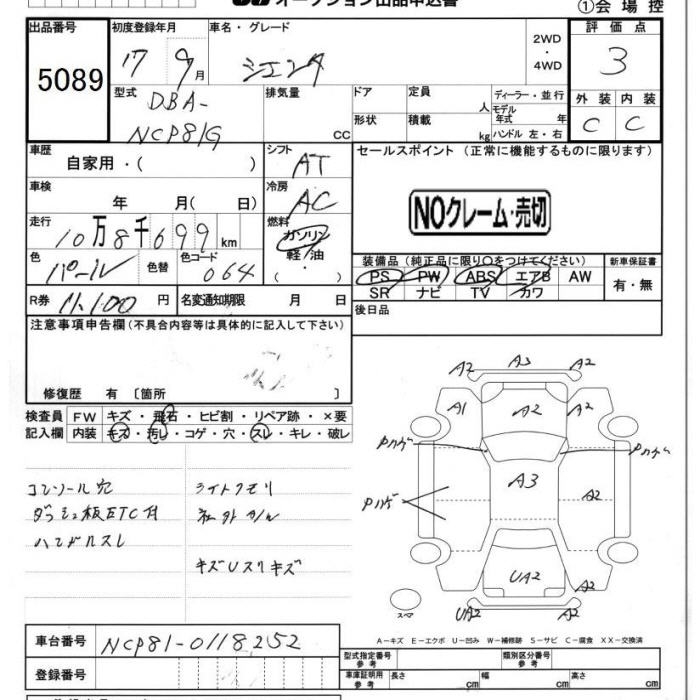 オークション出品申込書
①会場控
出品番号
初度登録年月
車名・グレード
評価点
5089
17 9月
シエンタ
2WD
・
4WD
3
型式
DBA-
NCP81G
排気量
cc
ドア
形状
定員
人
積載
kg
ディーラー・並行
モデル
年式 年
ハンドル 左・右
外装
内装
C
C
車歴
自家用・( )
シフト
AT
セールスポイント (正常に機能するものに限ります)
車検
年 月( 日)
冷房
AC
NOクレーム・売切
走行
10万8千699km
燃料
ガソリン
軽油
・
( )
色
パール
色替
色コード
064
装備品(純正品に限り○をつけてください)
PS PW ABS エアB AW
SR ナビ TV カワ
新車保証書
有・無
R券
11,100円
名変通知期限
月 日
後日品
注意事項申告欄(不具合内容等は具体的に記入して下さい)
修復歴 有〔箇所 〕
検査員
記入欄
FW キズ・飛石・ヒビ割・リペア跡・×要
内装 キズ・汚レ・コゲ・穴・スレ・キレ・破レ
コンソール穴
ダッシュ板ETC付
ハンドルスレ
ライトクモリ
社外アルミ
キズUスリキズ
A2 A3 A2
A1 A2 A2
Pハゲ
Pハゲ
A3
Pハゲ
A2
UA2
UA2 A2
スペア
A-キズ E-エクボ U-凹み W-補修跡 S-サビ C-腐食 XX-交換済
車台番号
NCP81-0118252
登録番号
型式指定番号
参考
類別区分番号
参考
車庫証明用
参考
長さ cm
幅 cm
高さ cm